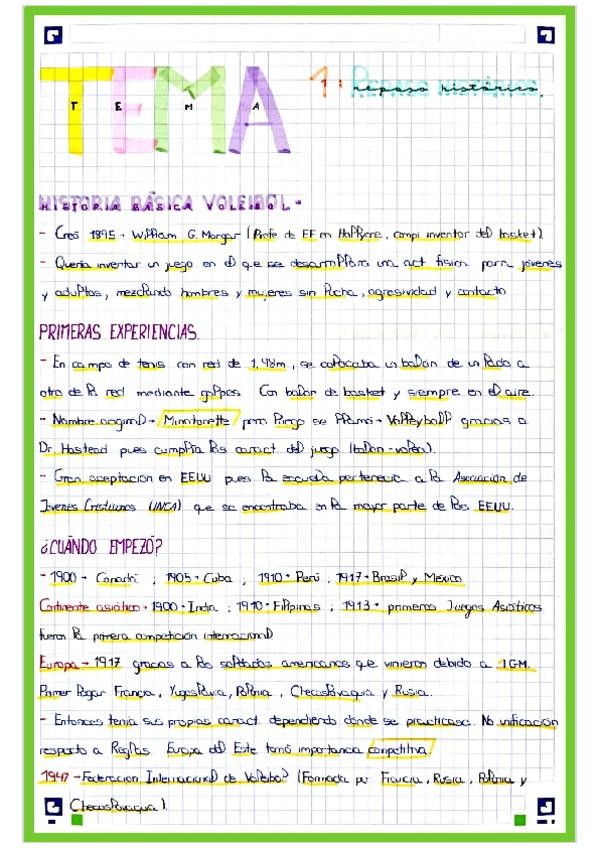 TEMA 1: REPASO HISTÓRICO.
T E M A repaso histórico.
HISTORIA BÁSICA VOLEIBOL-
- Creó 1895 - William G. Morgan (Profe de EF en Hollyone, compi inventor del basket)
- Quería inventar un juego en el que se desarrollara una act física para jóvenes
y adultos, mezclando hombres y mujeres sin lucha, agresividad y contacto
PRIMERAS EXPERIENCIAS.
- En campo de tenis con red de 1,98m, se colocaba un balón de un lado a
otro de la red mediante golpes. Con balón de basket y siempre en el aire.
- Nombre original - Minontonette pero luego se llamó - Volleyball gracias a
Dr. Hastead pues cumplía las caract. del juego (balón-volea).
- Gran aceptación en EEUU pues la escuela pertenecía a la Asociación de
Jóvenes Cristianos (YMCA) que se encontraba en la mayor parte de los EEUU.
¿CUÁNDO EMPEZÓ?
- 1900 - Canadá ; 1905 - Cuba ; 1910 - Perú ; 1917 - Brasil y México
Continente asiático - 1900 - India ; 1910 - Filipinas ; 1913 - primeros Juegos Asiáticos
fueron la primera competición internacional
Europa - 1917 gracias a los soldados americanos que vinieron debido a IGM.
Primer lugar Francia, Yugoslavia, Polonia, Checoslovaquia y Rusia.
- Entonces tenía sus propias caract. dependiendo donde se practicase. No unificación
respecto a Reglas Europa del Este tomó importancia competitiva
1947 - Federación Internacional de Voleibol (Formada por Francia, Rusia, Polonia y
Checoslovaquia).